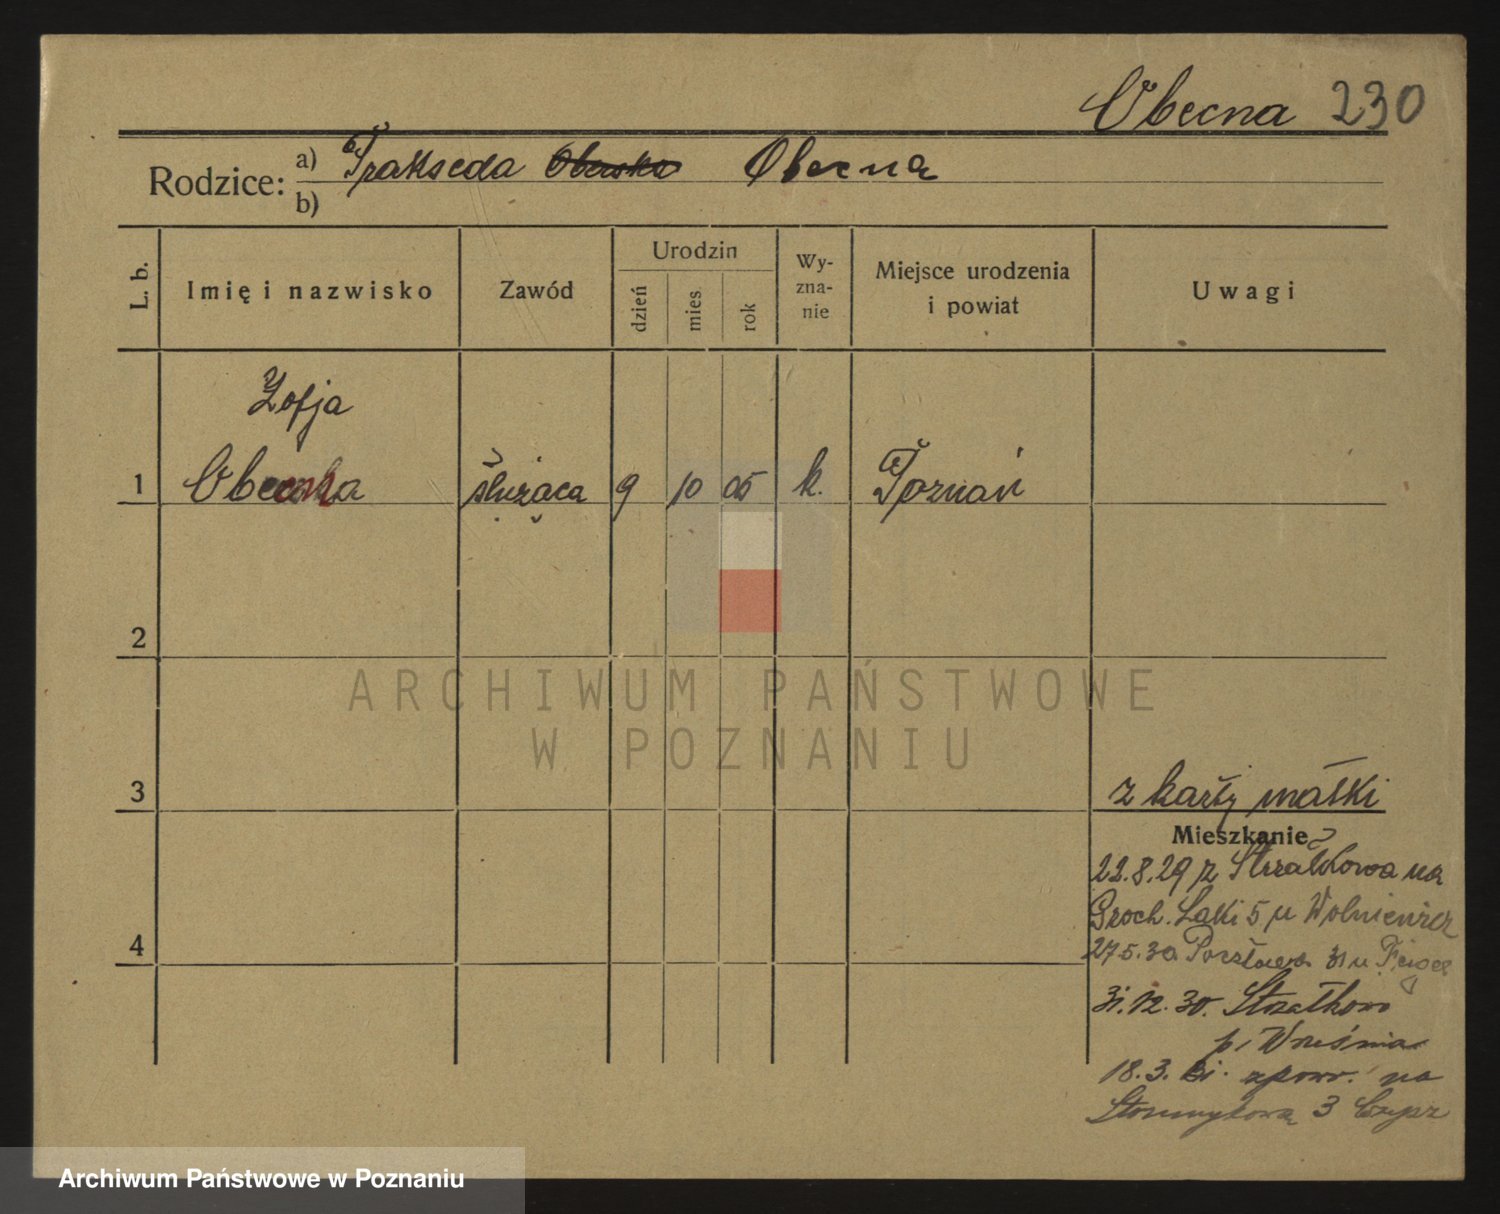 Obecna 230
Rodzice: a) Prakseda Obecna
b)
L. b.
Imię i nazwisko
Zawód
Urodzin
dzień
mies.
rok
Wy-
zna-
nie
Miejsce urodzenia
i powiat
Uwagi
Zofja
1 Obecna służąca 9 10 05 k. Poznań
2
ARCHIWUM PAŃSTWOWE
W POZNANIU
3
z karty matki
Mieszkanie
22.8.29 z Strzałkowa na
Groch. Łąki 5 u
4
27.5.30 Pocztowa 31 u
31.12.30. Strzałkowo
p. Września
18.3.31. zpow. na
3
Archiwum Państwowe w Poznaniu